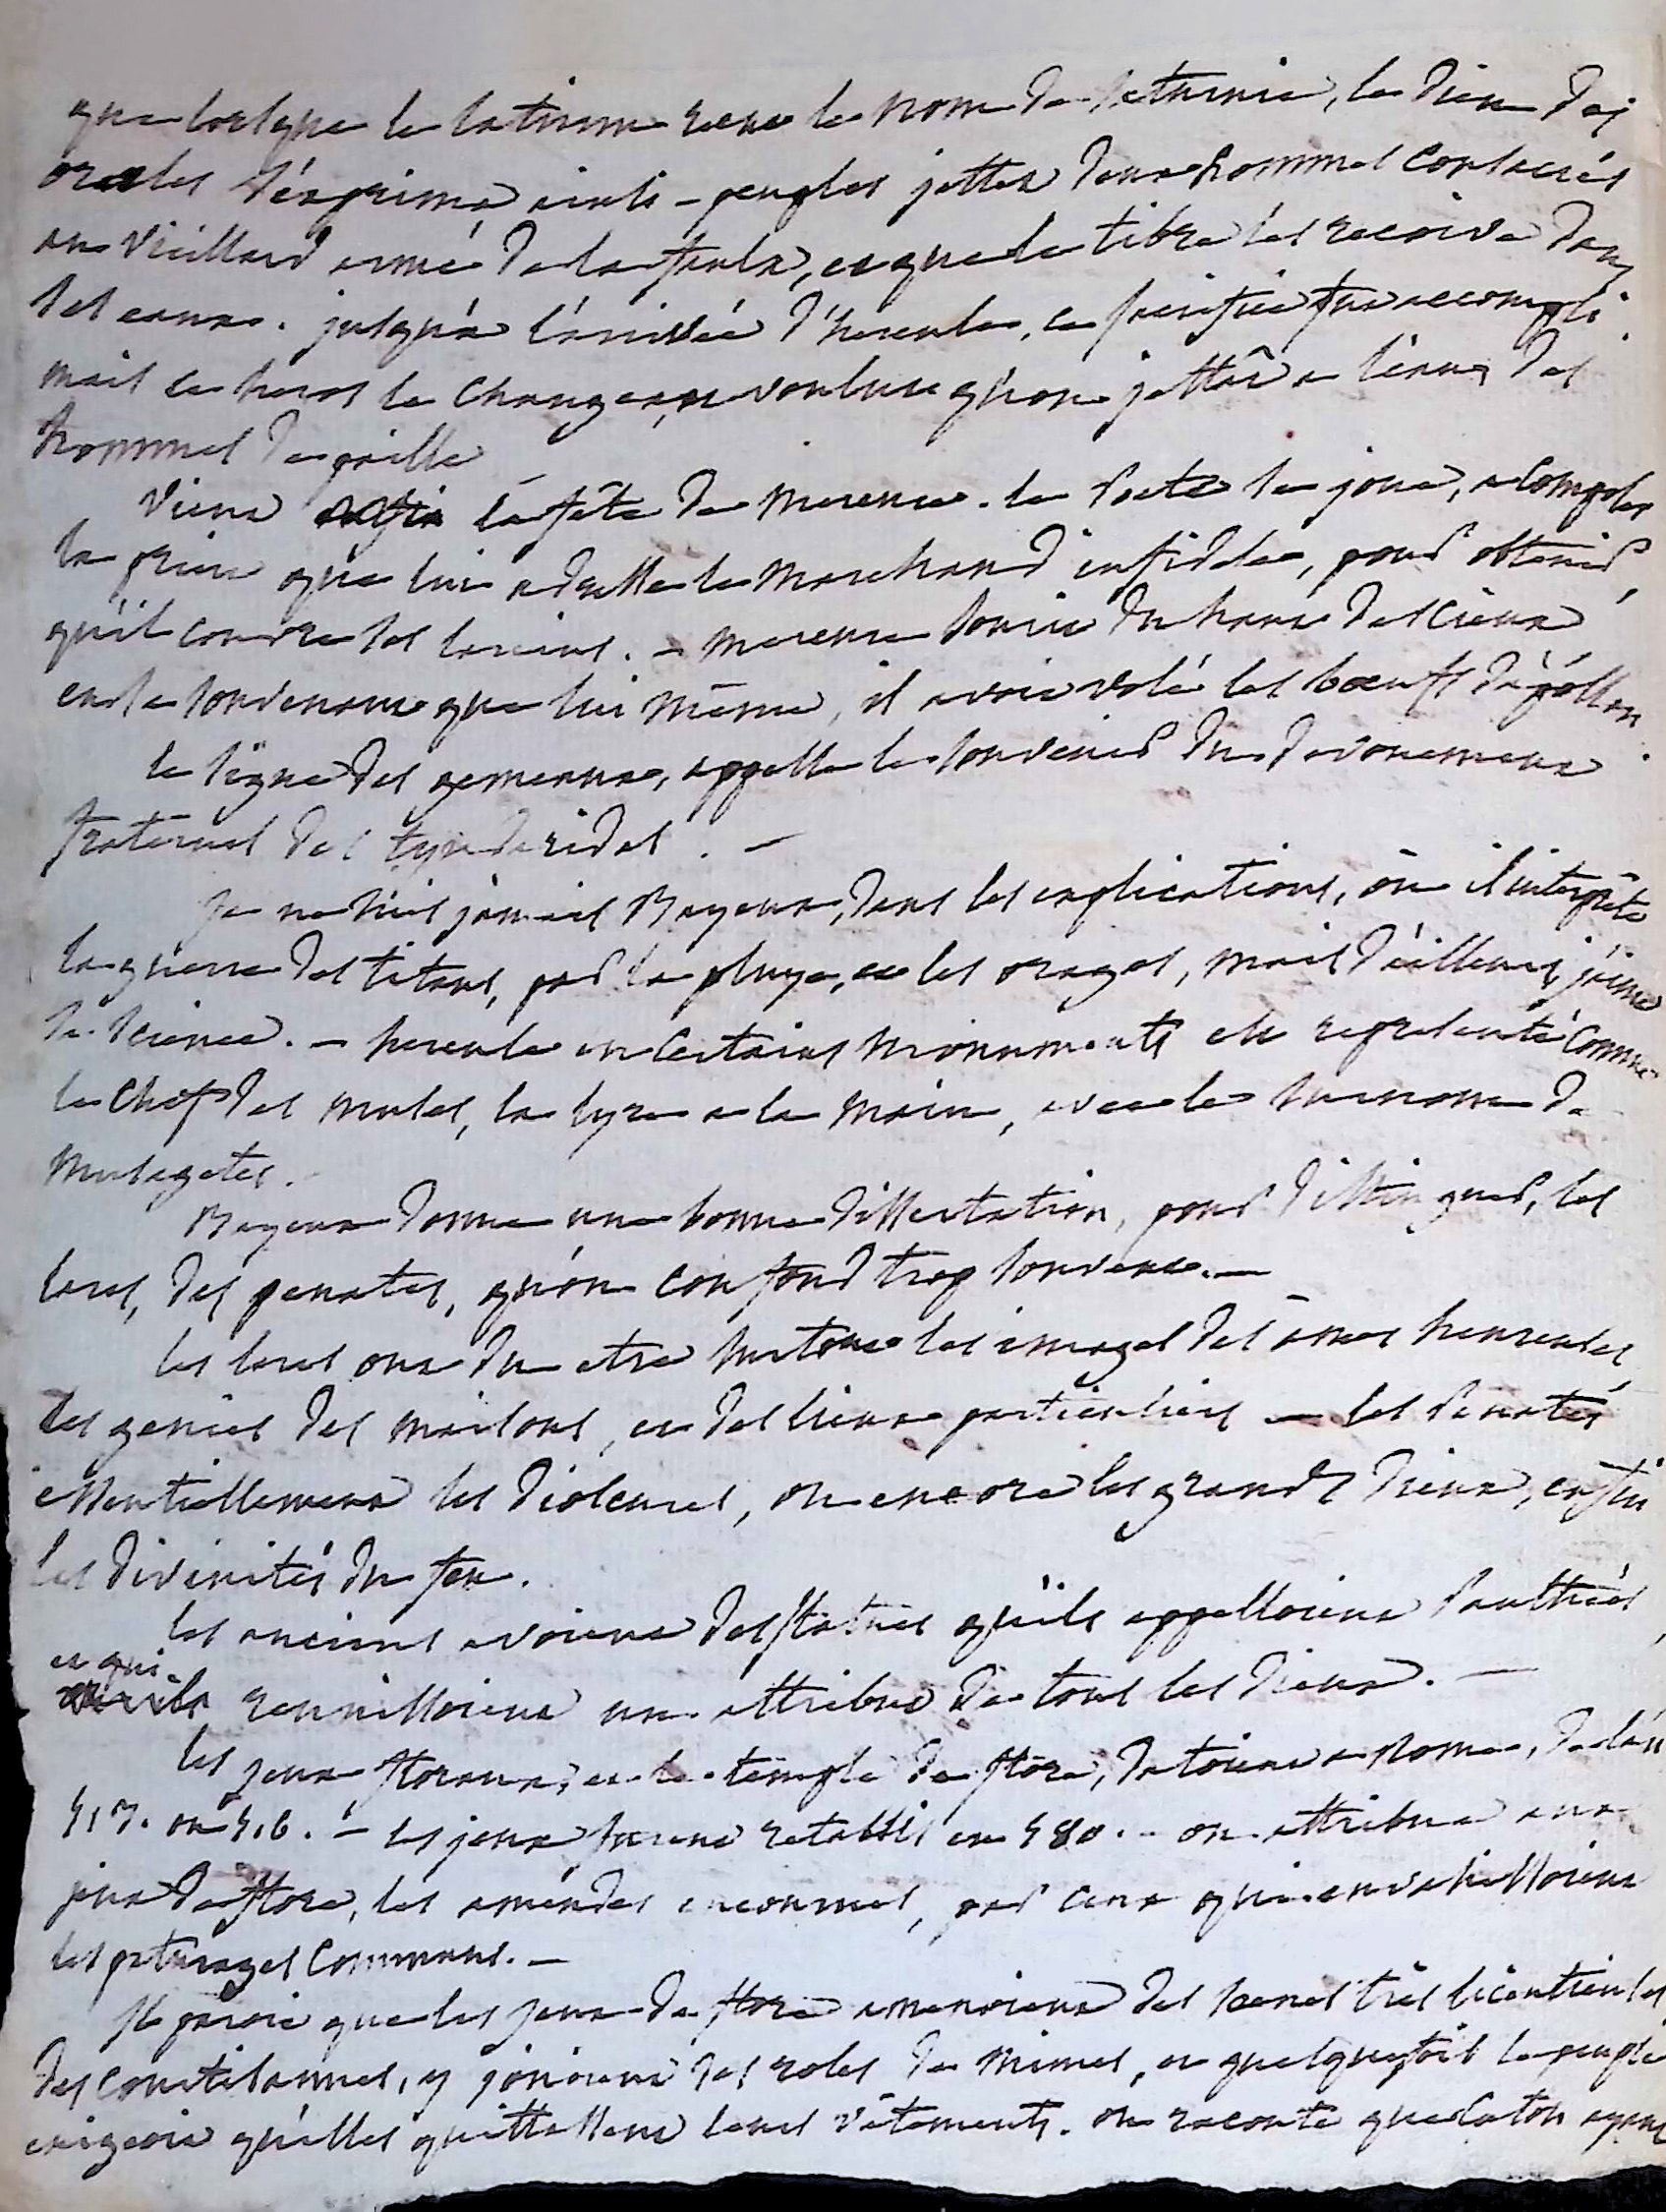 que lorsque le latium recut le nom de saturnie, le dieu des
oracles s'exprima ainsi - peuples jettez deux hommes consacrés
au vieillard armé de la faulx, et que le tibre les recoive dans
ses eaux. jusqu'à l'arrivée d'hercule, ce sacrifice fut accompli
mais ce heros le changea, et voulut qu'on jettât a l'eau, des
hommes de paille
vient la fête de mercure. le poete se joue, a compter
la priere que lui adresse le marchand infidele, pour obtenir,
qu'il couvre ses larcins. - mercure sourit du haut des cieux
en se souvenant que lui même, il avoit volé les boeufs d'apollon.
le signe des gemeaux, appelle le souvenir du devouement
fraternel des tyndarides. -
je ne suis jamais Bayeux, dans les explications, où il interprête
la guerre des titans, par la pluye, et les orages, mais d'ailleurs, j'aime
sa science. - hercule en certains monuments est representé comme
le chef des muses, la lyre a la main, avec le surnom de
musagetes.
Bayeux donne une bonne dissertation, pour distinguer, les
lares, des penates, qu'on confond trop souvent. -
les lares ont du etre surtout les images des ames heureuses,
les genies des maisons, et des lieux particuliers - les penates
essentiellement les dioscures, ou encore les grands dieux, enfin
les divinités du feu.
les anciens avoient des statues qu'ils appelloient panthées,
et qui
reunissoient un attribut de tous les dieux. -
les jeux floraux, et le temple de flore, datoient a Rome, de l'an
513. ou 516. - les jeux furent retablis en 580. - on attribua aux
jeux de flore, les amendes encourues, par ceux qui envahissoient
les paturages communs. -
il paroit que les jeux de flore amenoient des scenes très licentieuses
des courtisannes, y jouoient des roles de mimes, et quelquefois le peuple
exigeoit qu'elles quittassent leurs vêtements. on raconte que Caton ayant